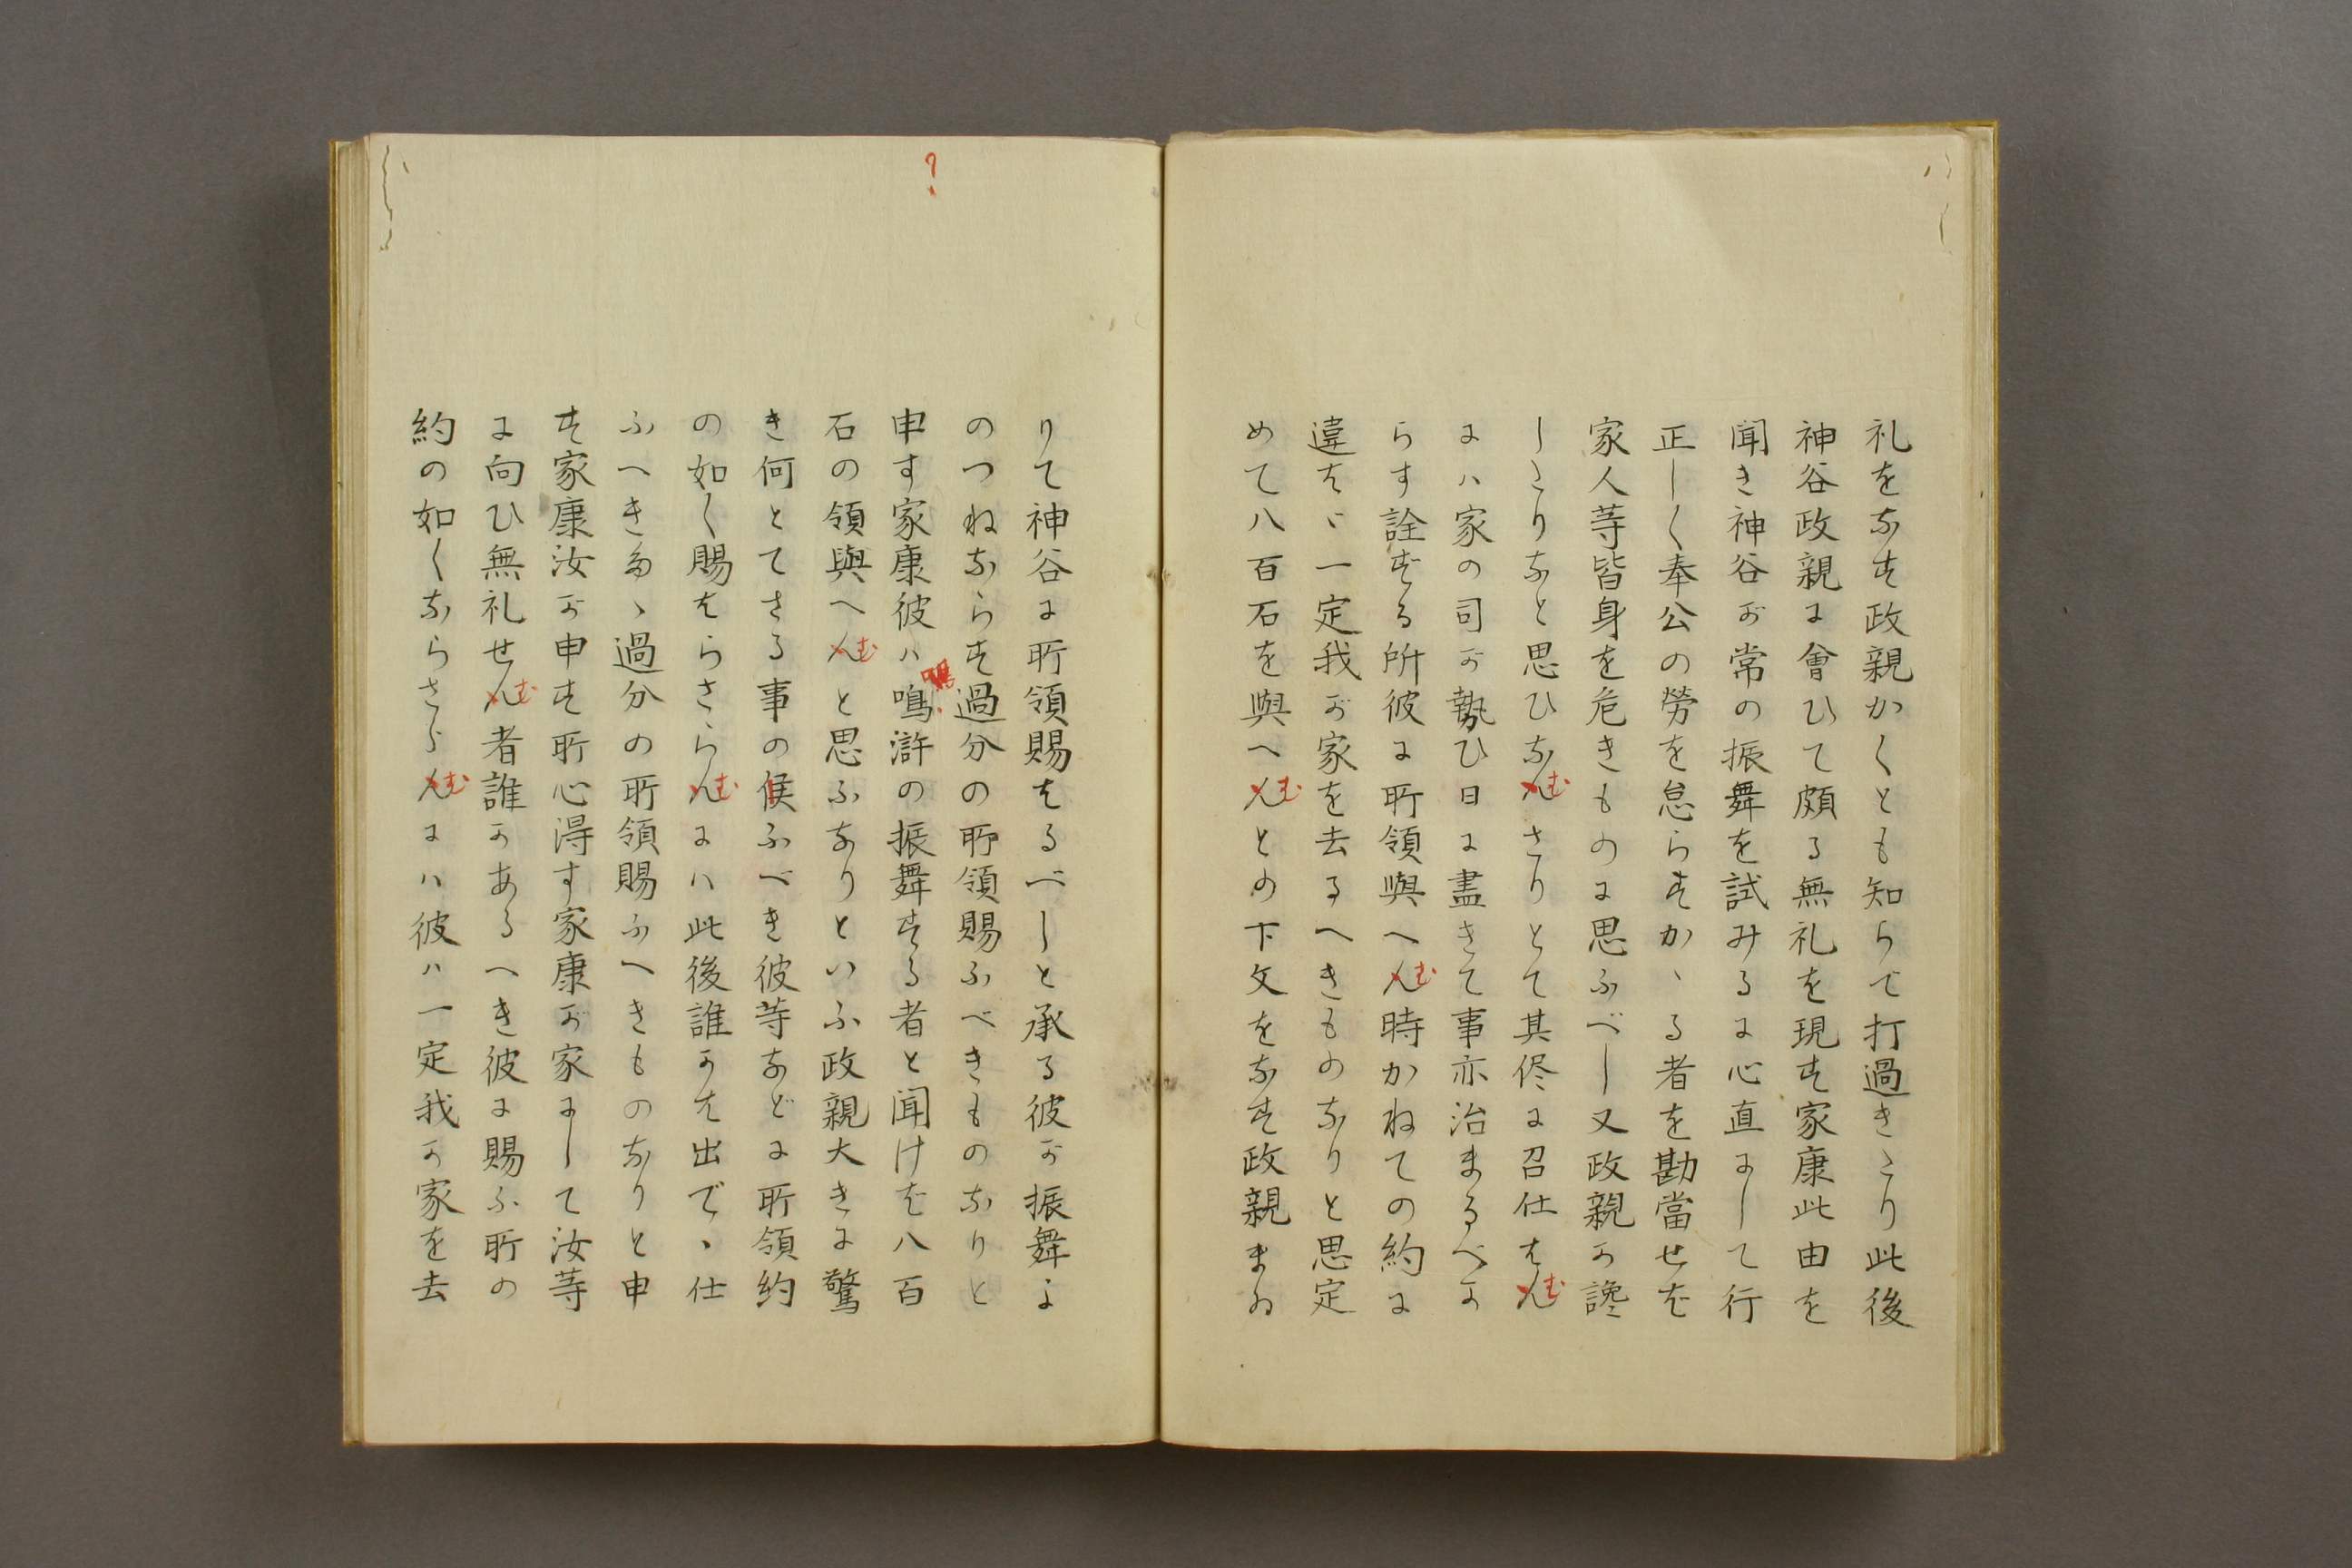 礼をなす政親かくとも知らで打過きたり此後
神谷政親に會ひて頗る無礼を現す家康此由を
聞き神谷が常の振舞を試みるに心直にして行
正しく奉公の勞を怠らすかゝる者を勘當せば
家人等皆身を危きものに思ふべし又政親か讒
したりなと思ひなんむさりとて其侭に召仕はんむ
にハ家の司が勢ひ日に盡きて事亦治まるべか
らす詮ずる所彼に所領與へんむ時かねての約に
違はゞ一定我が家を去るへきものなりと思定
めて八百石を與へんむとの下文をなす政親まゐ
りて神谷に所領賜はるべしと承る彼が振舞よ
のつねならす過分の所領賜ふべきものなりと
?
申す家康彼ハ鳴滸の振舞する者と聞けば八百
石の領與へんむと思ふなりといふ政親大きに驚
き何とてさる事の候ふべき彼等などに所領約
の如く賜はらさらんむにハ此後誰かは出でゝ仕
ふへきたゝ過分の所領賜ふへきものなりと申
す家康汝が申す所心得す家康が家にして汝等
に向ひ無礼せんむ者誰かあるへき彼に賜ふ所の
約の如くならさらんむにハ彼ハ一定我か家を去